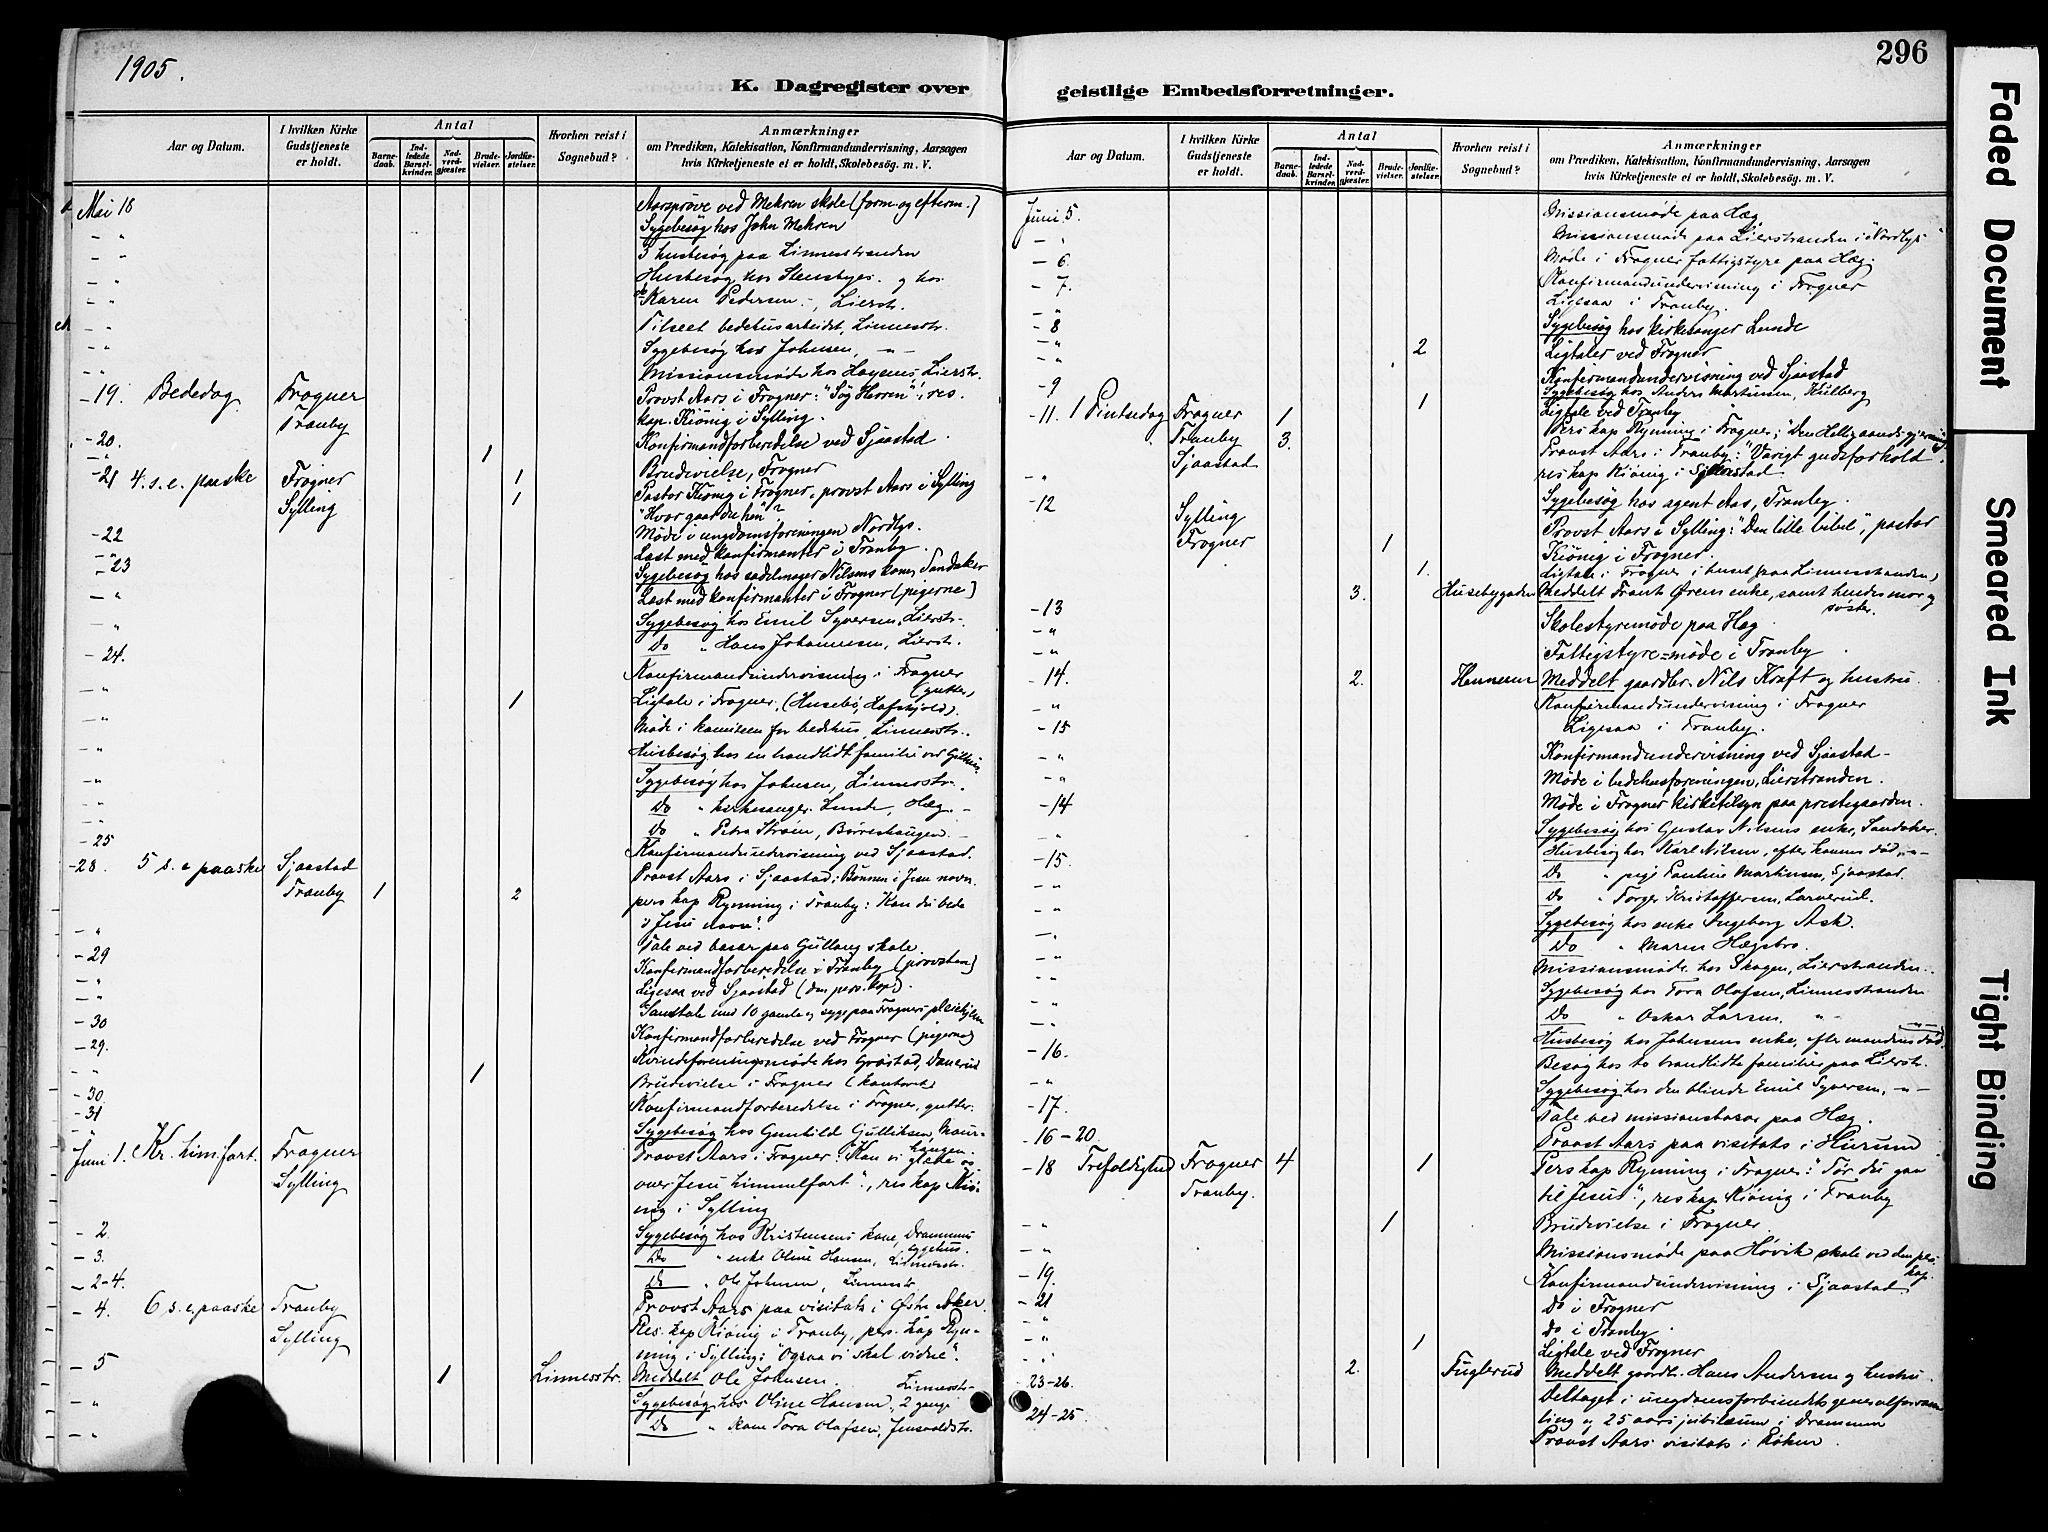 1905.
296
K. Dagregister over geistlige Embedsforretninger.
Aar og Datum.
I hvilken Kirke Gudstjeneste er holdt.
Antal
Barnedaab.
Indledede Barselkvinder.
Nadverdgjæster.
Brudevielser.
Jordfæstelser.
Hvorhen reist i Sognebud?
Anmærkninger
om Prædiken, Katekisation, Konfirmandundervisning, Aarsagen
hvis Kirketjeneste ei er holdt, Skolebesög. m. V.
Mai 18 Aarsprøve ved Mehren skole (form. og efterm.)
- " Sygebesøg hos John Mehren
- " 3 husbesøg paa Linnesstranden
- " Husbesøg hos Stensbyes og hos
- " do Karen Pedersen -, Lierstr.
- " Tilseet bedehusarbeidet, Linnesstr.
- " Sygebesøg hos Johnsen -"-
- " Missionsmøde hos Høysens, Lierstr.
- 19. Bededag Frogner Provst Aars i Frogner: "Søg Herren"; res.
Tranby kap. Kiönig i Sylling.
- 20. Konfirmandforberedelse ved Sjaastad
- " 1 Brudevielse, Frogner
- 21 4. s. e. paaske Frogner 1 Pastor Kiönig i Frogner, provst Aars i Sylling
Sylling 1 "Hvor gaar du hen"?
- 22 Møde i ungdomsforeningen Nordlys.
- " Læst med konfirmanter i Tranby
- 23 Sygebesøg hos sadelmager Nilsens kone, Sandaker
- " Læst med konfirmanter i Frogner (pigerne)
- " Sygebesøg hos Emil Syversen, Lierstr.
Do " Hans Johannesen, Lierstr.
- 24. Konfirmandundervisning i Frogner
(gutter)
- " 1 Ligtale i Frogner, (Husebö, Hafskjold).
- " Møde i komiteen for bedehus, Linnesstr.
- " Husbesøg hos en brandlidt familie ved Gilhus.
- " Sygebesøg hos Johnsen, Linnesstr.
- " Do " kirkesanger Lunde, Hæg.
- " Do " Petra Strøm, Børreshaugen
- 25 Konfirmandundervisning ved Sjaastad.
- 28. 5 s. e paaske Sjaastad Provst Aars i Sjaastad: Bønnen i Jesu navn.
Tranby 1 2 pers kap Rynning i Tranby: "Kan du bede
i Jesu navn?"
- " Tale ved basar paa Gullaug skole
- 29 Konfirmandforberedelse i Tranby (provsten)
- " Ligesaa ved Sjaastad (den pers. kap).
- " Samtale med 10 gamle og syge paa Frogners pleiehjem
- 30 Konfirmandforberedelse ved Frogner (pigerne)
- 29. Kvindeforeningsmøde hos Gröstad,
- " 1 Brudevielse i Frogner
- 30 Konfirmandforberedelse i Frogner, gutter.
- 31 Sygebesøg hos Gunhild Gulliksen,
haugen
Juni 1. Kr. himfart. Frogner Provst Aars i Frogner: "Kan vi glæde os
Sylling over Jesu himmelfart", res kap Kiö-
nig i Sylling
- 2. Sygebesøg hos Kristensens kone, Drammens
sygehus.
- 3. Do " enke Oline Hansen, Linnesstr.
Do " Ole Johnsen, Linnesstr
- 2-4. Provst Aars paa visitats i Østre Aker.
- 4. 6 s. e. paaske Tranby Res. kap Kiönig i Tranby, pers. kap Ryn-
Sylling ning i Sylling: "Ogsaa vi skal vidne".
- 5 1 Linnesstr. Meddelt Ole Johnsen. Linnesstr.
- " Sygebesøg hos Oline Hansen, 2 gange
- " Do " kone Tora Olafsen, Jensvoldstr.
Juni 5. Missionsmøde paa Hæg
- " Missionsmøde paa Lierstranden i "Nordlys"
- 6 Møde i Frogner fattigstyre paa Hæg.
- 7. Konfirmandundervisning i Frogner
- " Ligesaa i Tranby.
- 8 Sygebesøg hos kirkesanger Lunde
- " 2 Ligtaler ved Frogner
- " Konfirmandundervisning ved Sjaastad
- 9 Sygebesøg hos Anders Martinsen, Kulberg
1 Ligtale ved Tranby
- 11. 1 Pintsedag Frogner 1 Pers kap Rynning i Frogner; "Den Helligaands gjerning"
Tranby 3. Provst Aars i Tranby: "Varigt gudsforhold"
Sjaastad res kap Kiönig i Sjaastad
- " Sygebesøg hos agent Aas, Tranby.
- 12 Sylling Provst Aars i Sylling: "Den lille bibel", pastor
Frogner 1 Kiönig i Frogner.
1. Ligtale i Frogner i huset (paa Linnesstranden)
- 13 3. Husebygaden Meddelt Frantz Ørens enke, samt hendes mor og
søster.
- " Skolestyremøde paa Hæg
- " Fattigstyre=møde i Tranby
- 14. 2. Hennerun Meddelt gaardbr. Nils Kraft og hustru
- " Konfirmandundervisning i Frogner
- 15 Ligesaa i Tranby.
- " Konfirmandundervisning ved Sjaastad
- " Møde i bedehusforeningen, Lierstranden.
- 14 Møde i Frogner kirketilsyn paa prestegaarden.
- " Sygebesøg hos Gustav Nilsens enke, Sandaker.
- 15 Husbesøg hos Karl Nilsen, efter konens död, -"-
- " Do " pige Pauline Martinsen, Sjaastad.
- " Do " Torger Kristoffersen, Larverud.
- " Sygebesøg hos enke Ingeborg Ask.
- " Do " Maren Hægsbro.
- " Missionsmøde hos Skogen, Lierstranden.
- " Sygebesøg hos Tora Olafsen, Linnesstranden
- " Do " Oskar Larsen -"-
- " Husbesøg hos Johnsens enke, efter mandens död. -"-
- 16. Besøg hos to brandlidte familier paa Lierstr.
- " Sygebesøg hos den blinde Emil Syversen, -"-
- 17. Tale ved missionsbasar paa Hæg.
- 16-20. Provst Aars paa visitats i Hurum
- 18 Trefoldighed Frogner 4 1 Pers kap Rynning i Frogner: "Tør du gaa
Tranby. til Jesus", res kap Kiönig i Tranby
- " 1 Brudevielse i Frogner.
- " Missionsmøde paa Høvik skole ved den pers.
kap.
- 19. Konfirmandundervisning i Sjaastad
- 21 Do i Frogner
- " Do i Tranby.
- " 1 Ligtale ved Frogner
- " 2. Fuglerud Meddelt gaardbr. Hans Andersen og hustru.
23-26. Deltaget i ungdomsforbundets generalforsam
ling og 25 aars jubilæum i Drammen
24-25. Provst Aars visitats i Røken.
Faded Document
Smeared Ink
Tight Binding